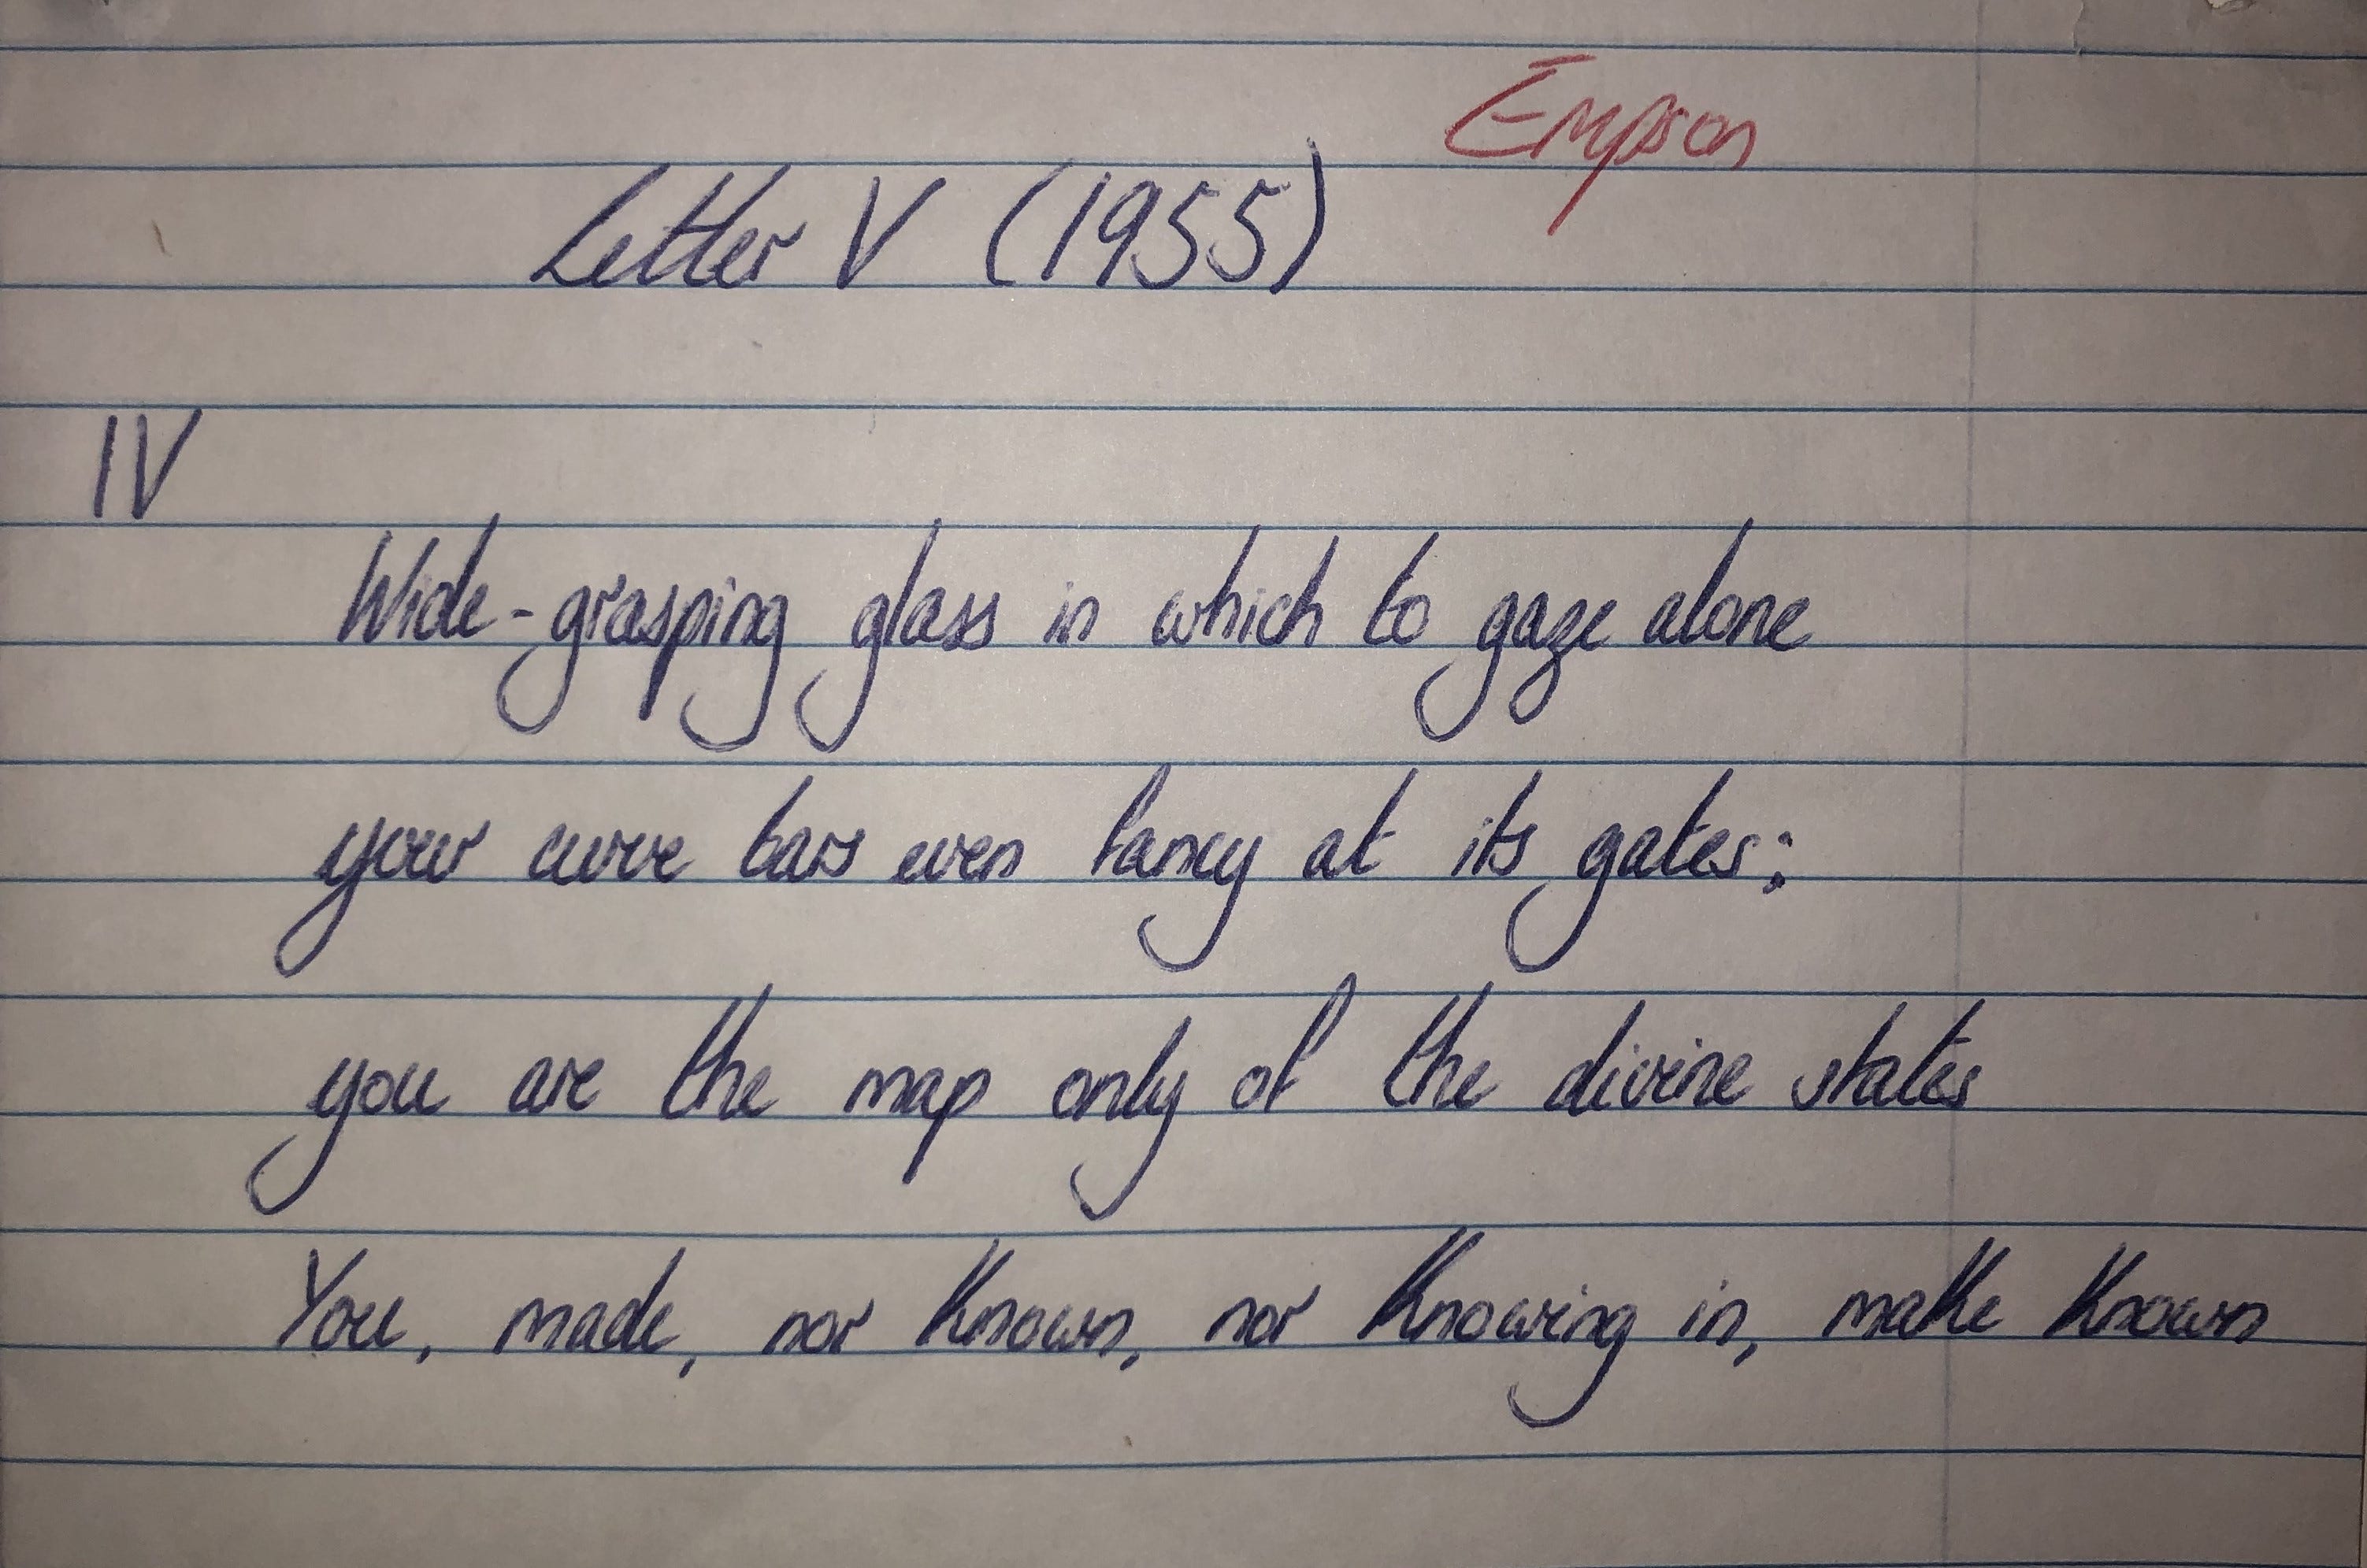 Empson
Letter V (1955)
IV
Wide-grasping glass in which to gaze alone
your curve bars even fancy at its gates;
you are the map only of the divine states
You, made, nor known, nor knowing in, make known